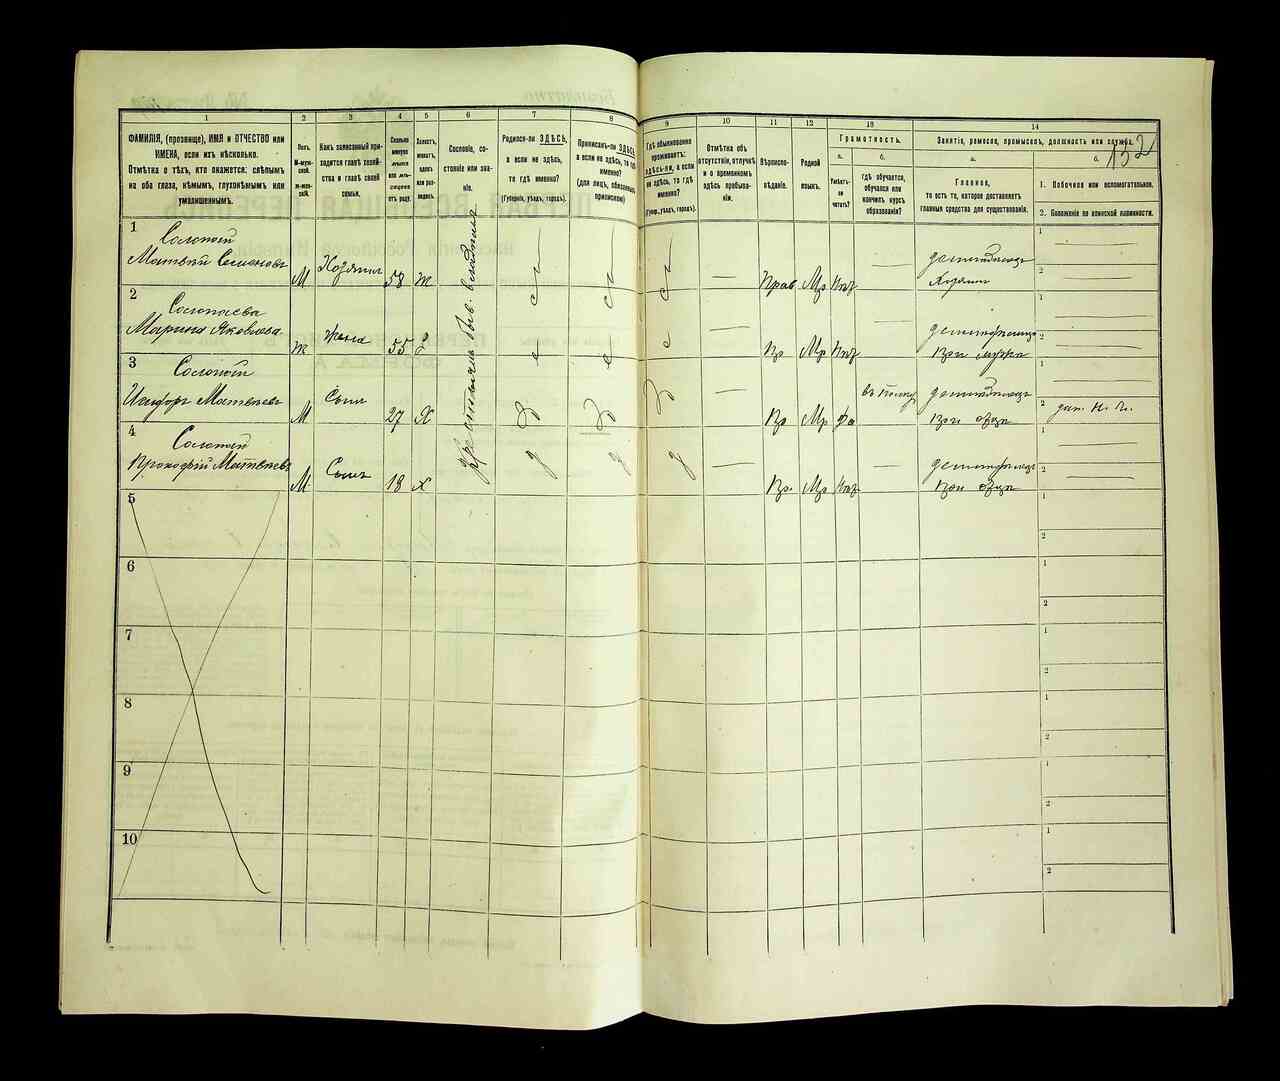 1
2
3
4
5
6
7
8
9
10
11
12
13
14
ФАМИЛІЯ, (прозвище), ИМЯ и ОТЧЕСТВО или
ИМЕНА, если ихъ нѣсколько.
Отмѣтка о тѣхъ, кто окажется: слѣпымъ
на оба глаза, нѣмымъ, глухонѣмымъ или
умалишеннымъ.
Полъ.
М-муж-
ской.
ж-жен-
скій.
Какъ записанный при-
ходится главѣ хозяй-
ства и главѣ своей
семьи.
Сколько
минуло
лѣтъ
или мѣ-
сяцевъ
отъ роду.
Холостъ,
женатъ,
вдовъ
или раз-
веденъ.
Сословіе, со-
стояніе или зва-
ніе.
Родился-ли ЗДѢСЬ,
а если не здѣсь,
то гдѣ именно?
(Губернія, уѣздъ, городъ).
Приписанъ-ли ЗДѢСЬ,
а если не здѣсь, то гдѣ
именно?
(для лицъ, обязанныхъ
припискою)
Гдѣ обыкновенно
проживаетъ:
ЗДѢСЬ-ли, а если
не здѣсь, то гдѣ
именно?
(Губер., уѣздъ, городъ).
Отмѣтка объ
отсутствіи, отлучкѣ
и о временномъ
здѣсь пребыва-
ніи.
Вѣроиспо-
вѣданіе.
Родной
языкъ.
Грамотность.
а.
Умѣетъ-
ли
читать?
б.
гдѣ обучается,
обучался или
кончилъ курсъ
образованія?
Занятіе, ремесло, промыселъ, должность или служба.
а.
Главное,
то есть то, которое доставляетъ
главныя средства для существованія.
б.
1. Побочное или вспомогательное.
2. Положеніе по воинской повинности.
132
1
Солопый
Матвѣй Семеновъ
М
Хозяинъ
58
Ж
Крестьянъ быв. владѣльч
Прав
Мр
Нѣт
Хозяинъ
1
2
2
Солопаева
Марина Яковлева
Ж
Жена
55
Пр
Мр
Нѣт
При мужѣ
1
2
3
Солопый
Исидоръ Матвѣевъ
М
Сынъ
27
Х
Пр
Мр
Да
При отцѣ
1
2
4
Солопый
Прокофій Матвѣевъ
М.
Сынъ
18
Х
Пр.
Мр
Нѣт
При отцѣ
1
2
5
1
2
6
1
2
7
1
2
8
1
2
9
1
2
10
1
2